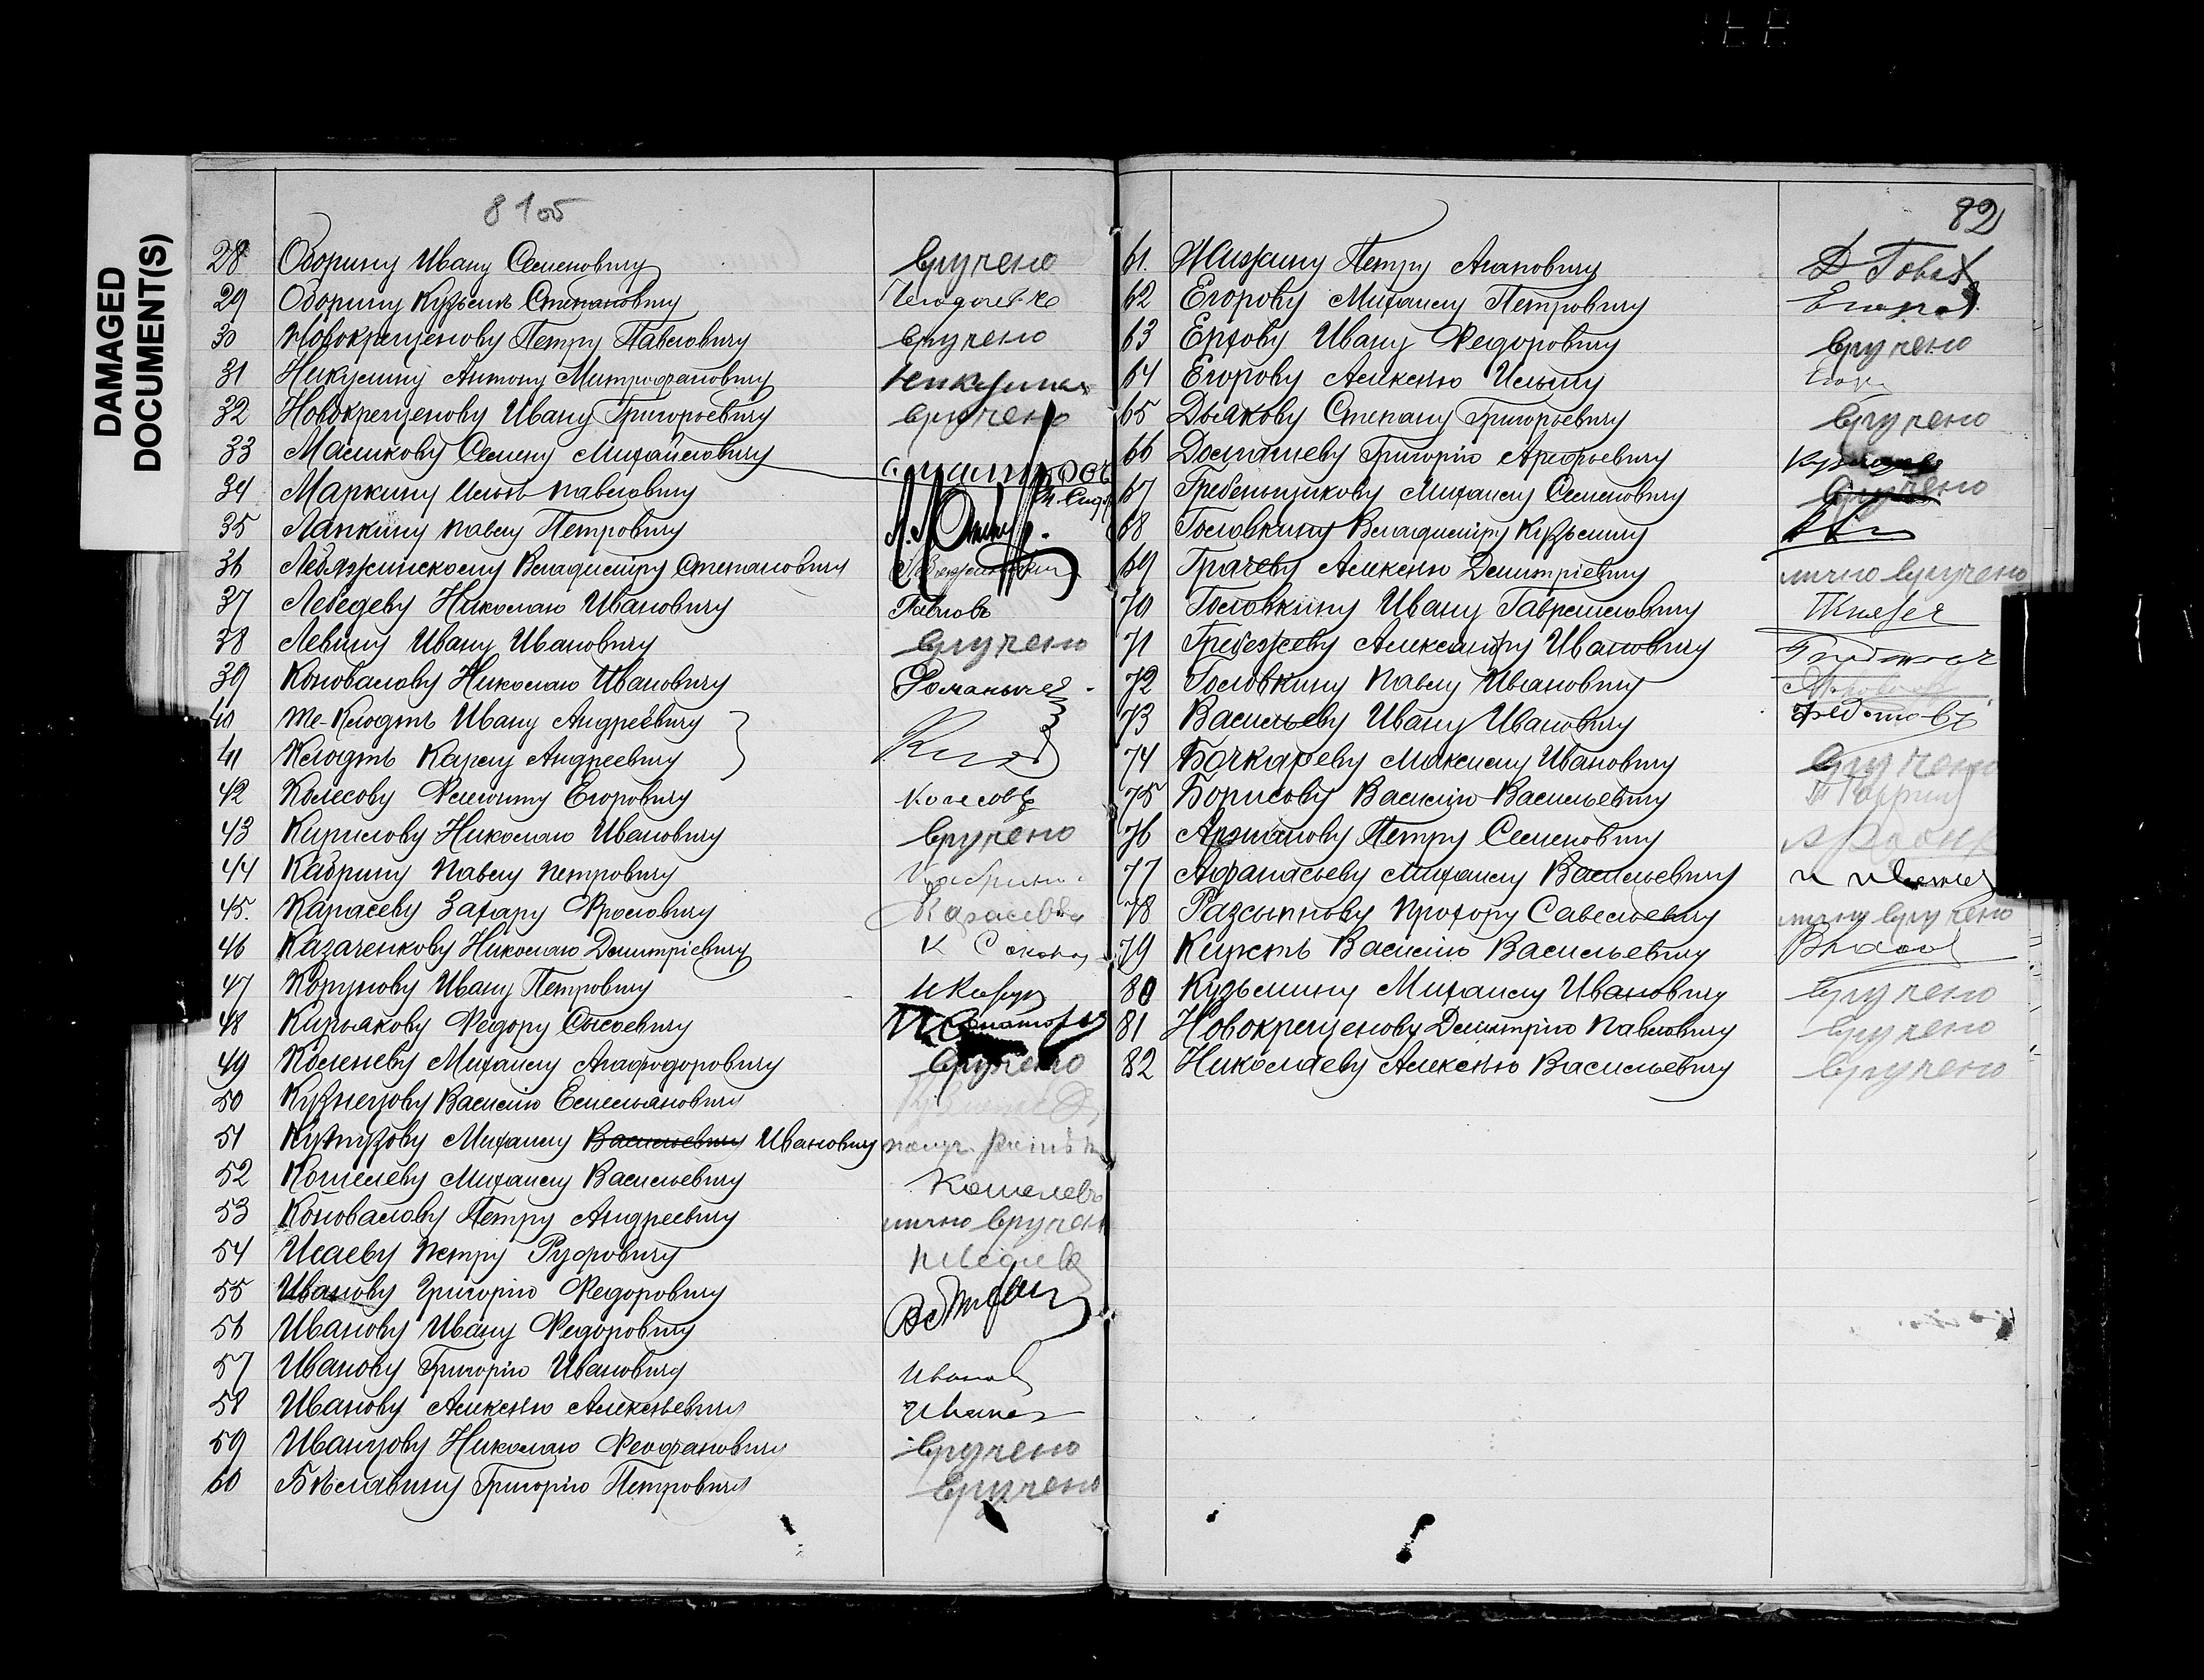 DAMAGED
DOCUMENT(S)
81об
28 Оборину Ивану Семеновичу вручено
29 Оборину Кузьмѣ Степановичу
30 Новокрещенову Петру Павловичу вручено
31 Никулину Антону Митрофановичу Никулина
32 Новокрещенову Ивану Григорьевичу вручено
33 Маликову Семену Михайловичу
34 Маркину Ильѣ Павловичу
35 Лапкину Павлу Петровичу
36 Лебяжинскому Владиміру Степановичу
37 Лебедеву Николаю Ивановичу Павловъ
38 Левину Ивану Ивановичу вручено
39 Коновалову Николаю Ивановичу Романычев
40 Те-Клодтъ Ивану Андреевичу
41 Клодтъ Карлу Андреевичу
42 Колесову Филиппу Егоровичу Колесовъ
43 Кирилову Николаю Ивановичу вручено
44 Кабрину Павлу Петровичу Кабринъ
45. Карасеву Захару Фроловичу Карасевъ
46 Казаченкову Николаю Дмитріевичу
47 Корунову Ивану Петровичу
48 Кирьякову Федору Сысоевичу
49 Коленеву Михаилу Агафодоровичу вручено
50 Кузнецову Василію Емельяновичу
51 Кутузову Михаилу Васильевичу Ивановичу
52 Кошелеву Михаилу Васильевичу Кошелевъ
53 Коновалову Петру Андреевичу лично вручен
54 Исаеву Петру Руфовичу
55 Иванову Григорію Федоровичу
56 Иванову Ивану Федоровичу
57 Иванову Григорію Ивановичу Иванов
58 Иванову Алексѣю Алексѣевичу Иванов
59 Иванцову Николаю Феофановичу вручено
60 Бѣлявину Григорію Петровичу вручено
82
61. Жихину Петру Агаповичу
62 Егорову Михаилу Петровичу Егоров
63 Ерхову Ивану Федоровичу вручено
64 Егорову Алексѣю Ильичу
65 Дьякову Степану Григорьевичу вручено
66 Досташеву Григорію Арефьевичу
67 Гребенщикову Михаилу Семеновичу вручено
68 Головкину Владиміру Кузьмичу
69 Грачеву Алексѣю Дмитріевичу лично вручено
70 Головкину Ивану Гавриловичу
71 Гребежеву Александру Ивановичу
72 Головкину Павлу Ивановичу
73 Васильеву Ивану Ивановичу Федотовъ
74 Бочкареву Максиму Ивановичу вручено
75 Борисову Василію Васильевичу
76 Аржанову Петру Семеновичу
77 Афанасьеву Михаилу Васильевичу
78 Разсыпнову Прохору Савельевичу лично вручено
79 Кирстъ Василію Васильевичу
80 Кузьмину Михаилу Ивановичу вручено
81 Новокрещенову Дмитрію Павловичу вручено
82 Николаеву Алексѣю Васильевичу вручено